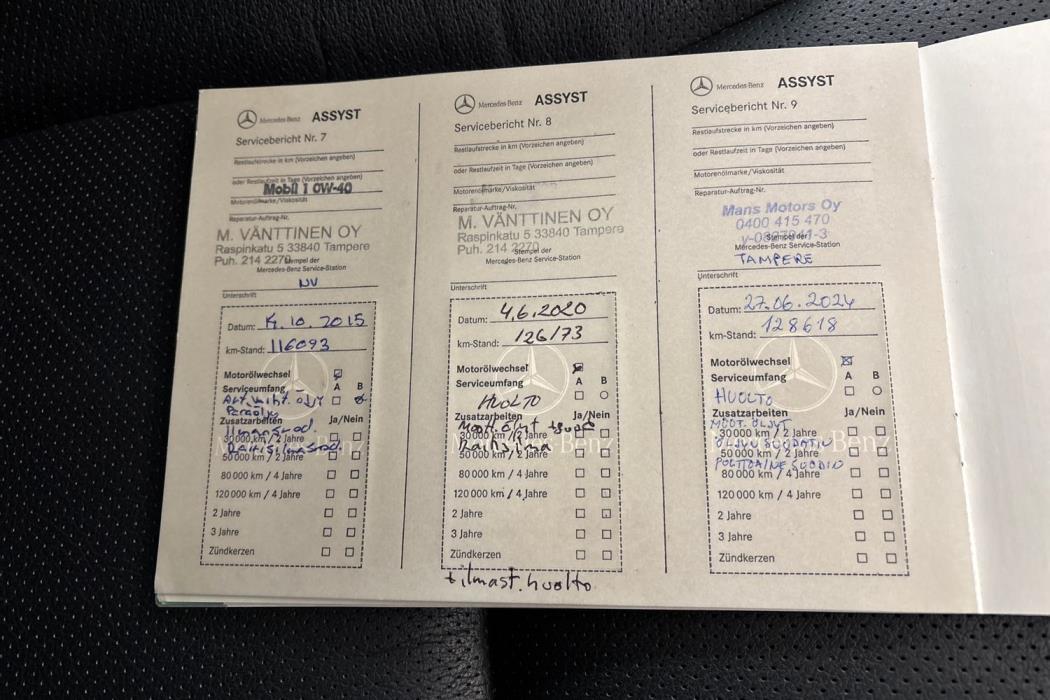 Mercedes-Benz ASSYST
Servicebericht Nr. 7
Restlaufstrecke in km (Vorzeichen angeben)
oder Restlaufzeit in Tage (Vorzeichen angeben)
Mobil 1 0W-40
Motorenölmarke/Viskosität
Reparatur-Auftrag-Nr.
M. VÄNTTINEN OY
Raspinkatu 5 33840 Tampere
Puh. 214 2270
Stempel der
Mercedes-Benz Service-Station
Unterschrift
Datum: 10. 2015
km-Stand: 116093
Motorölwechsel
Serviceumfang A B
Zusatzarbeiten Ja/Nein
Ilmansuod.
30 000 km / 2 Jahre
50 000 km / 2 Jahre
80 000 km / 4 Jahre
120 000 km / 4 Jahre
2 Jahre
3 Jahre
Zündkerzen
Mercedes-Benz ASSYST
Servicebericht Nr. 8
Restlaufstrecke in km (Vorzeichen angeben)
oder Restlaufzeit in Tage (Vorzeichen angeben)
Motorenölmarke/Viskosität
Reparatur-Auftrag-Nr.
M. VÄNTTINEN OY
Raspinkatu 5 33840 Tampere
Puh. 214 2270
Stempel der
Mercedes-Benz Service-Station
Unterschrift
Datum: 4.6.2020
km-Stand: 126173
Motorölwechsel
Serviceumfang A B
HUOLTO
Zusatzarbeiten Ja/Nein
30 000 km / 2 Jahre
50 000 km / 2 Jahre
80 000 km / 4 Jahre
120 000 km / 4 Jahre
2 Jahre
3 Jahre
Zündkerzen
+ ilmast. huolto
Mercedes-Benz ASSYST
Servicebericht Nr. 9
Restlaufstrecke in km (Vorzeichen angeben)
oder Restlaufzeit in Tage (Vorzeichen angeben)
Motorenölmarke/Viskosität
Reparatur-Auftrag-Nr.
Mans Motors Oy
0400 415 470
Stempel der
Mercedes-Benz Service-Station
TAMPERE
Unterschrift
Datum: 27.06.2024
km-Stand: 128618
Motorölwechsel
Serviceumfang A B
HUOLTO
Zusatzarbeiten Ja/Nein
MOOT. ÖLJYT
30 000 km / 2 Jahre
ÖLJYN SUODATIN
50 000 km / 2 Jahre
POLTTOAINE SUODIN
80 000 km / 4 Jahre
120 000 km / 4 Jahre
2 Jahre
3 Jahre
Zündkerzen